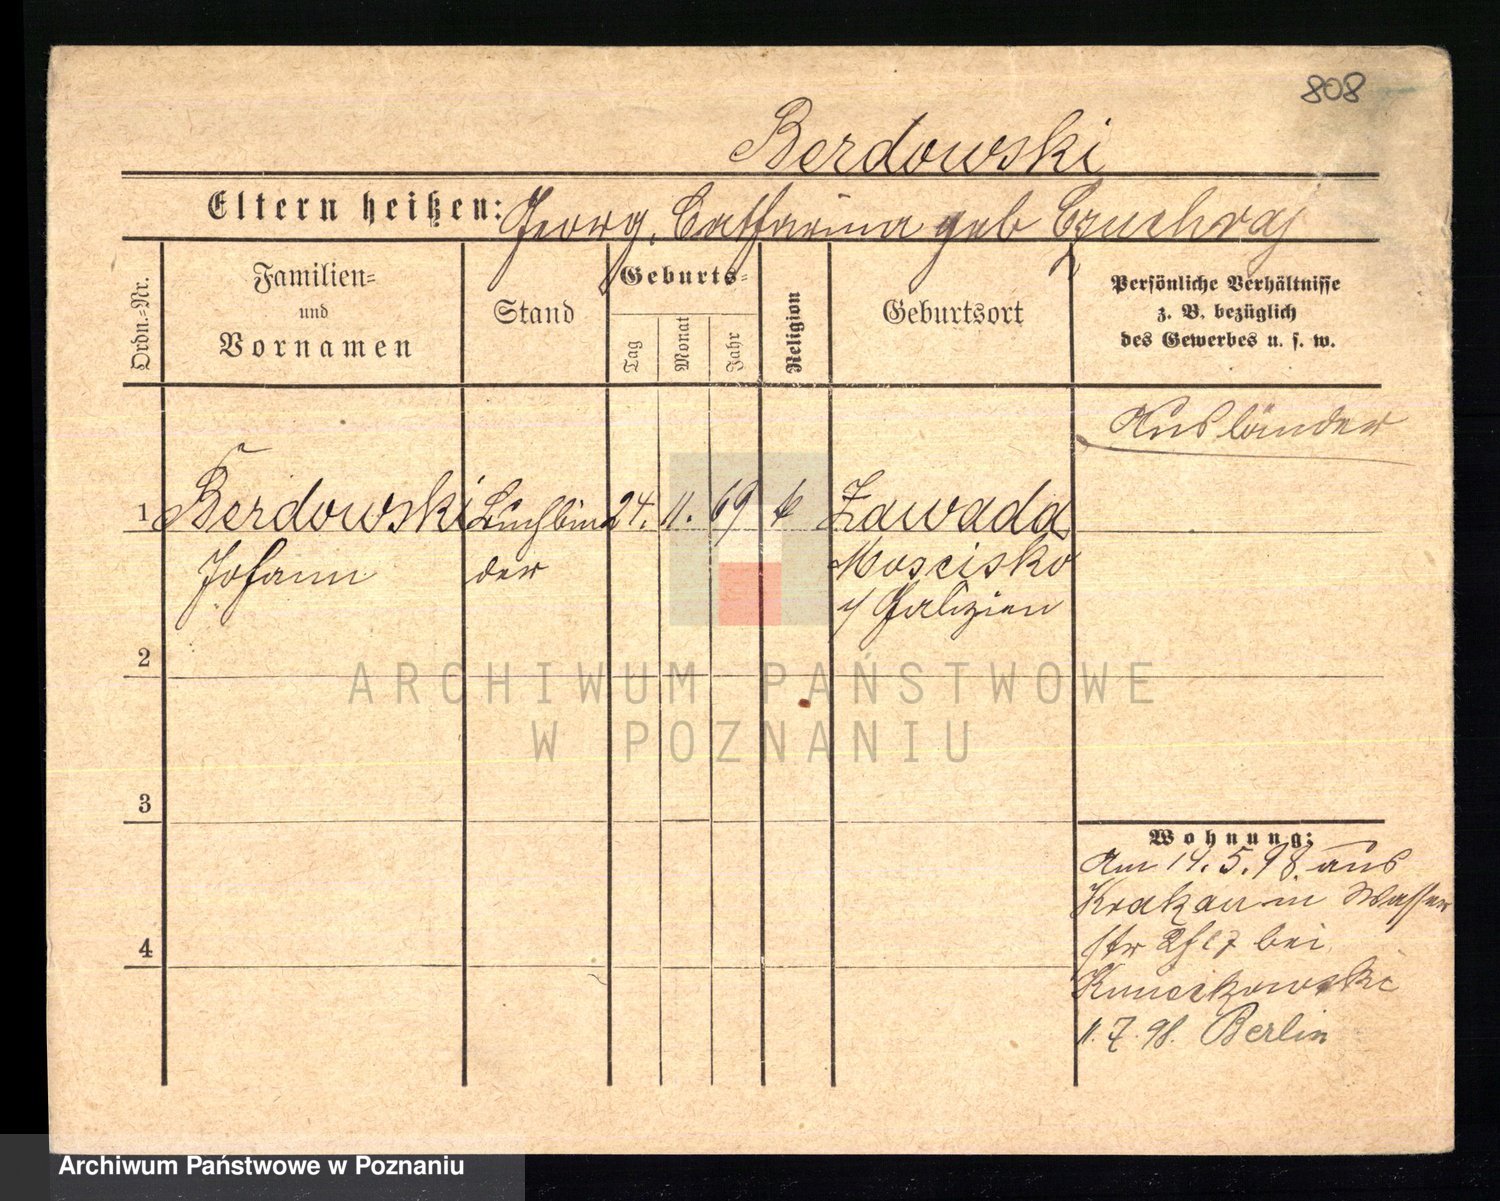 808
Berdowski
Eltern heißen: Georg, Catharina geb Czuchraj
Ordn.-Nr.
Familien-
und
Vornamen
Stand
Geburts-
Tag
Monat
Jahr
Religion
Geburtsort
Persönliche Verhältnisse
z. B. bezüglich
des Gewerbes u. s. w.
Ausländer
1 Berdowski Buchbin 24. 11. 69 k Zawada
Johann der Moscisko
Galizien
2
3
4
ARCHIWUM PAŃSTWOWE
W POZNANIU
Wohnung:
Am 14. 5. 98. aus
Krakau in Wasser
str bei
11. 7. 98. Berlin
Archiwum Państwowe w Poznaniu